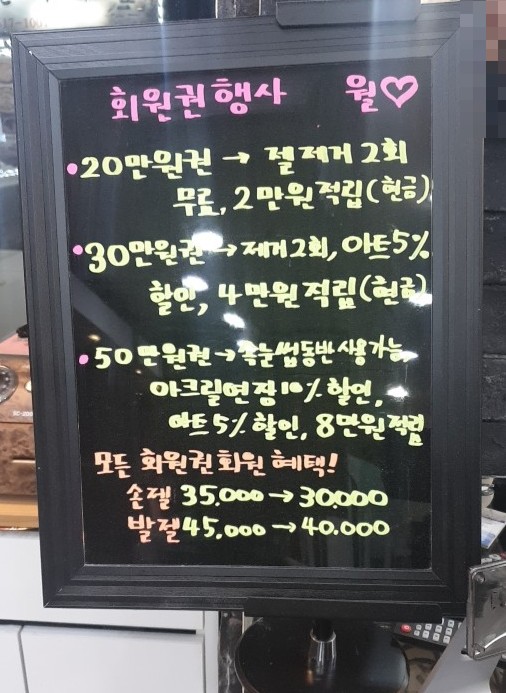 회원권행사 월♡
•20만원권 → 젤제거 2회
무료, 2만원적립(현금)
•30만원권 → 제거2회, 아트5%
할인, 4만원적립(현금)
•50만원권 → 속눈썹동반사용가능,
아크릴연장10% 할인,
아트5% 할인, 8만원적립
모든 회원권회원 혜택!
손젤 35.000 → 30.000
발젤 45.000 → 40.000